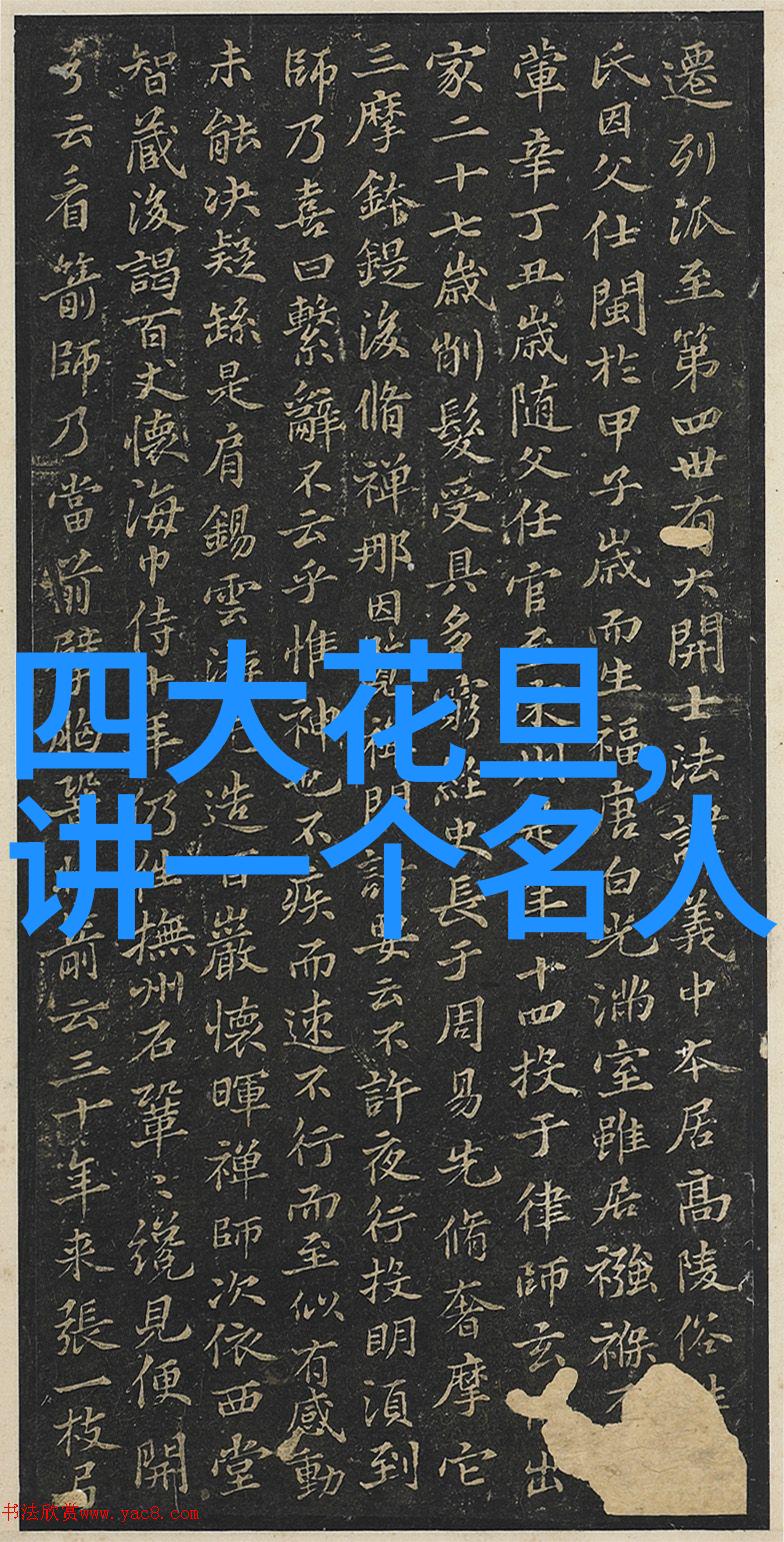 遷列派至第四世有大開士法諱義中本居高陵俗
氏因父仕閩於甲子歲而生福唐白光滿室雖居襁褓
葷辛丁丑歲随父任官至十四投于律師玄出
家二十七歲削髮受具多窮經史長于周易先脩奢摩它
三摩鉢鍉後脩禅那因詣云不許夜行投明湏到
師乃喜曰繫辭不云乎惟神也不疾而速不行而至似有感動
未能决疑繇是肩錫雲造百巖懷暉禅師次依西堂
智藏後謁百丈懷海巾侍十年仍往撫州石鞏鞏纔見便開
弓云看箭師乃當前擘胸鞏云三十年來張一枝弓
四大花旦,
讲一个名人
书法欣赏www.yac8.com